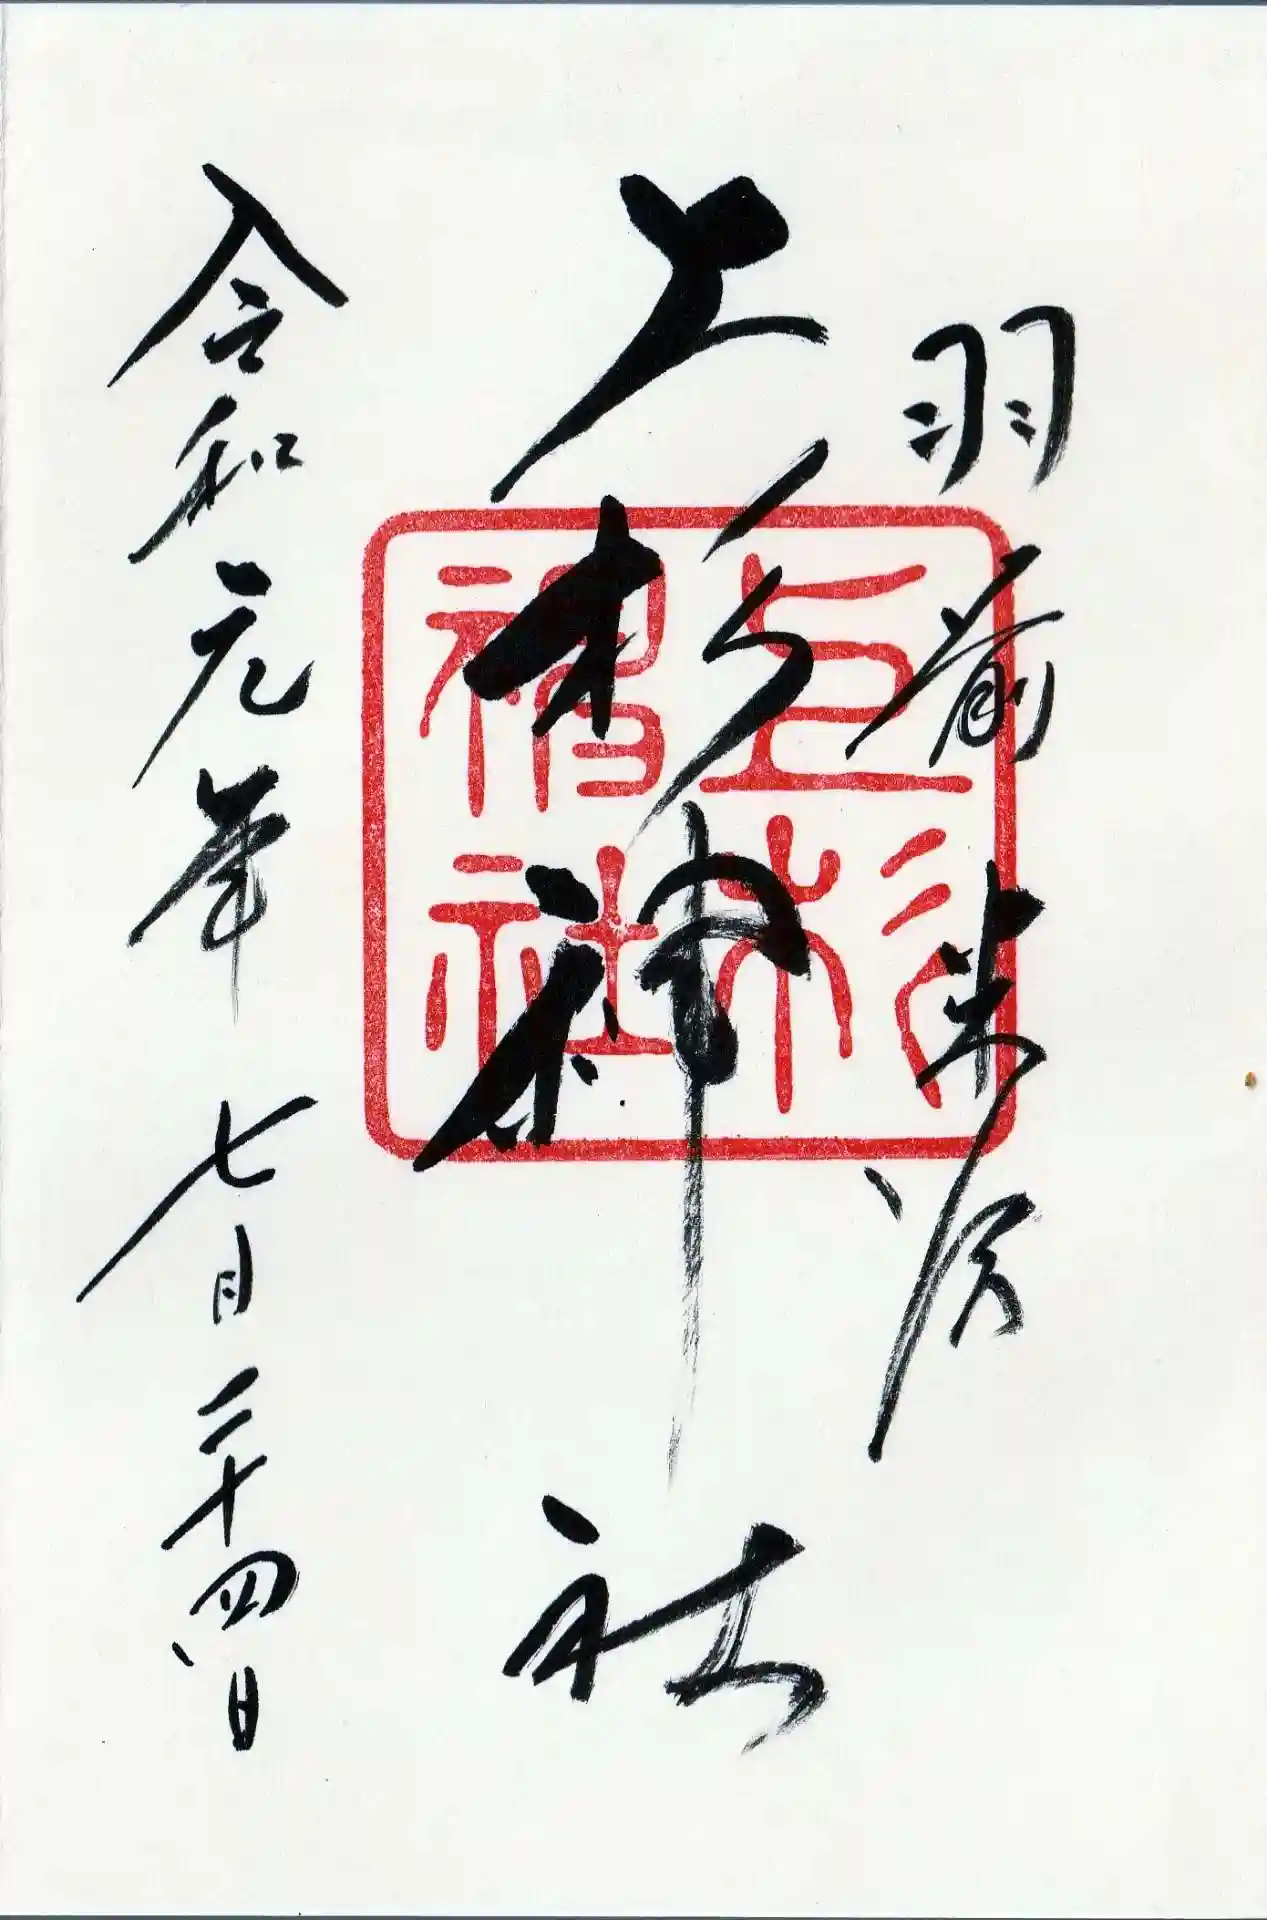 羽前米沢
上杉神社
上杉
神社
令和元年 七月二十四日